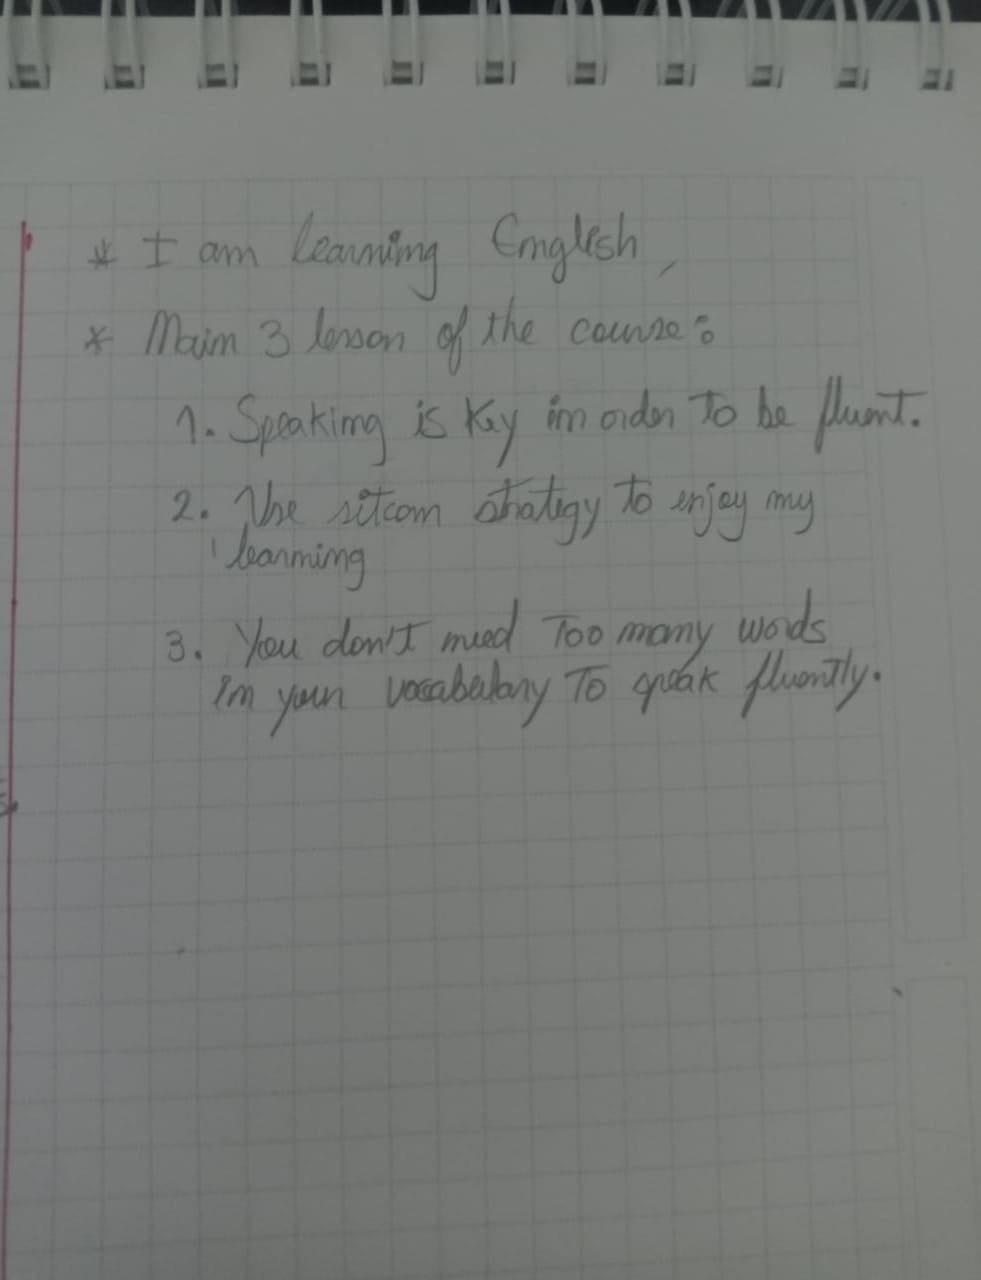 * I am learning English,
* Main 3 lesson of the course:
1. Speaking is key in order to be fluent.
2. Use sitcom strategy to enjoy my
learning
3. You don't need Too many words
in your vocabulary To speak fluently.